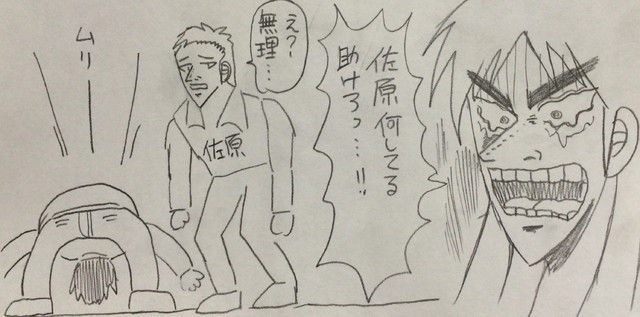 佐原何してる
助けろっ…!!
え?
無理…
佐原
ムリー